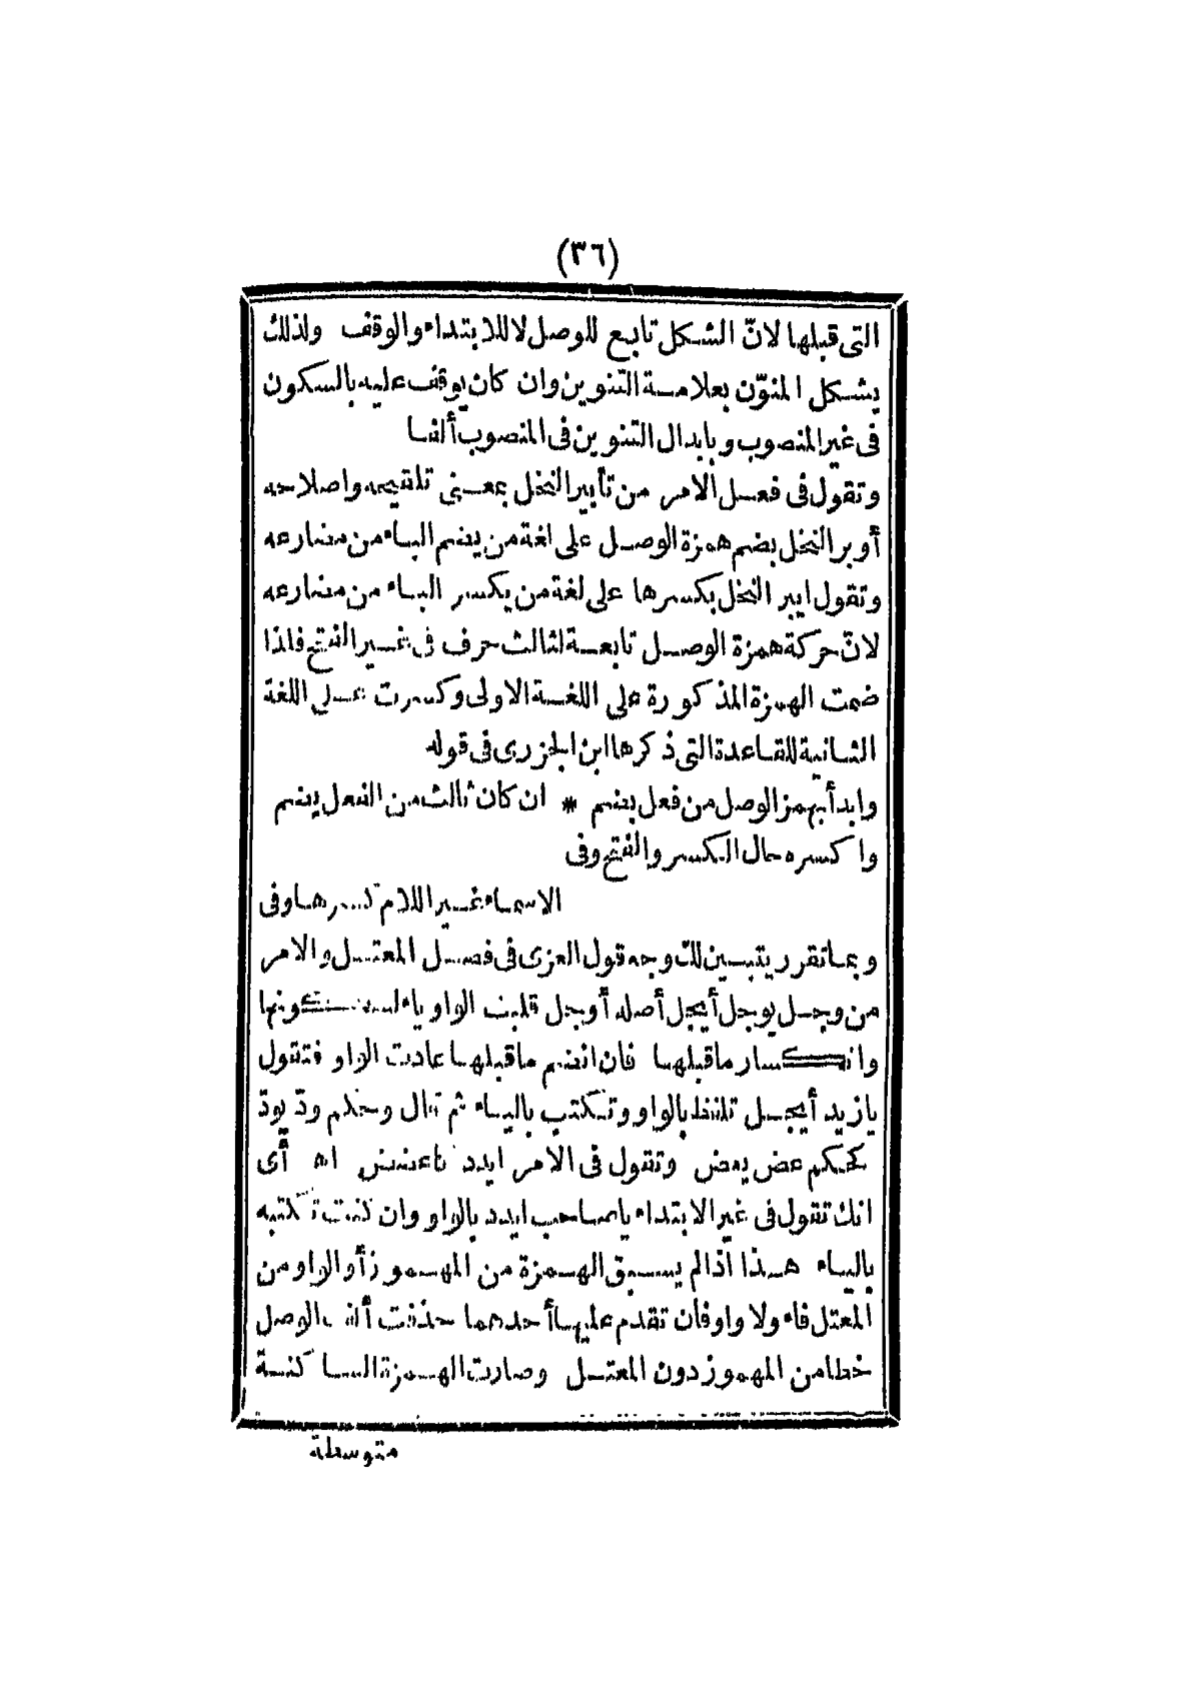 (٣٦)
التى قبلها لانّ الشكل تابع للوصل لا للابتداء والوقف ولذلك
يشكل المنوّن بعلامة التنوين وان كان يوقف عليه بالسكون
فى غير المنصوب وبابدال التنوين فى المنصوب ألفا
وتقول فى فعل الامر من تأبير النخل بمعنى تلقيحه واصلاحه
أوبر النخل بضم همزة الوصل على لغة من يضم الباء من مضارعه
وتقول ايبر النخل بكسرها على لغة من يكسر الباء من مضارعه
لانّ حركة همزة الوصل تابعة لثالث حرف فى غير الفتح فلذا
ضمت الهمزة المذكورة على اللغة الاولى وكسرت على اللغة
الثانية للقاعدة التى ذكرها ابن الجزرى فى قوله
وابدأ بهمز الوصل من فعل بضم * ان كان ثالث من الفعل يضم
واكسره حال الكسر والفتح وفى
الاسماء غير اللام كسرها وفى
وبما تقرر يتبين لك وجه قول العزى فى فصل المعتل والامر
من وجل يوجل أيجل أصله أوجل قلبت الواو ياء لسكونها
وانكسار ماقبلها فان انضم ماقبلها عادت الواو فتقول
يازيد أيجل تلفظ بالواو وتكتب بالياء ثم قال وحكم ودّ يودّ
كحكم عض يعض وتقول فى الامر ايدد كاعضض اه أى
انك تقول فى غير الابتداء ياصاحب ايدد بالواو وان كنت تكتبه
بالياء هذا اذا لم يسبق الهمزة من المهموز أو الواو من
المعتل فاء ولا واو فان تقدم عليها أحدهما حذفت ألف الوصل
خطا من المهموز دون المعتل وصارت الهمزة الساكنة
متوسطة